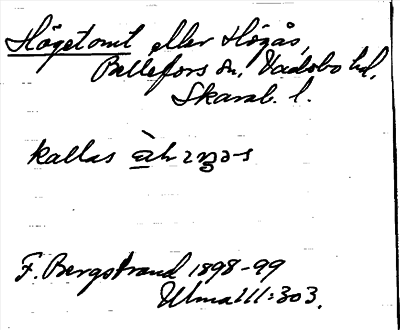 Högetomt eller Högås,
Bällefors sn, Vadsbo hd,
Skarab. l.
kallas
F. Bergstrand 1898-99
Ulma 111:303.